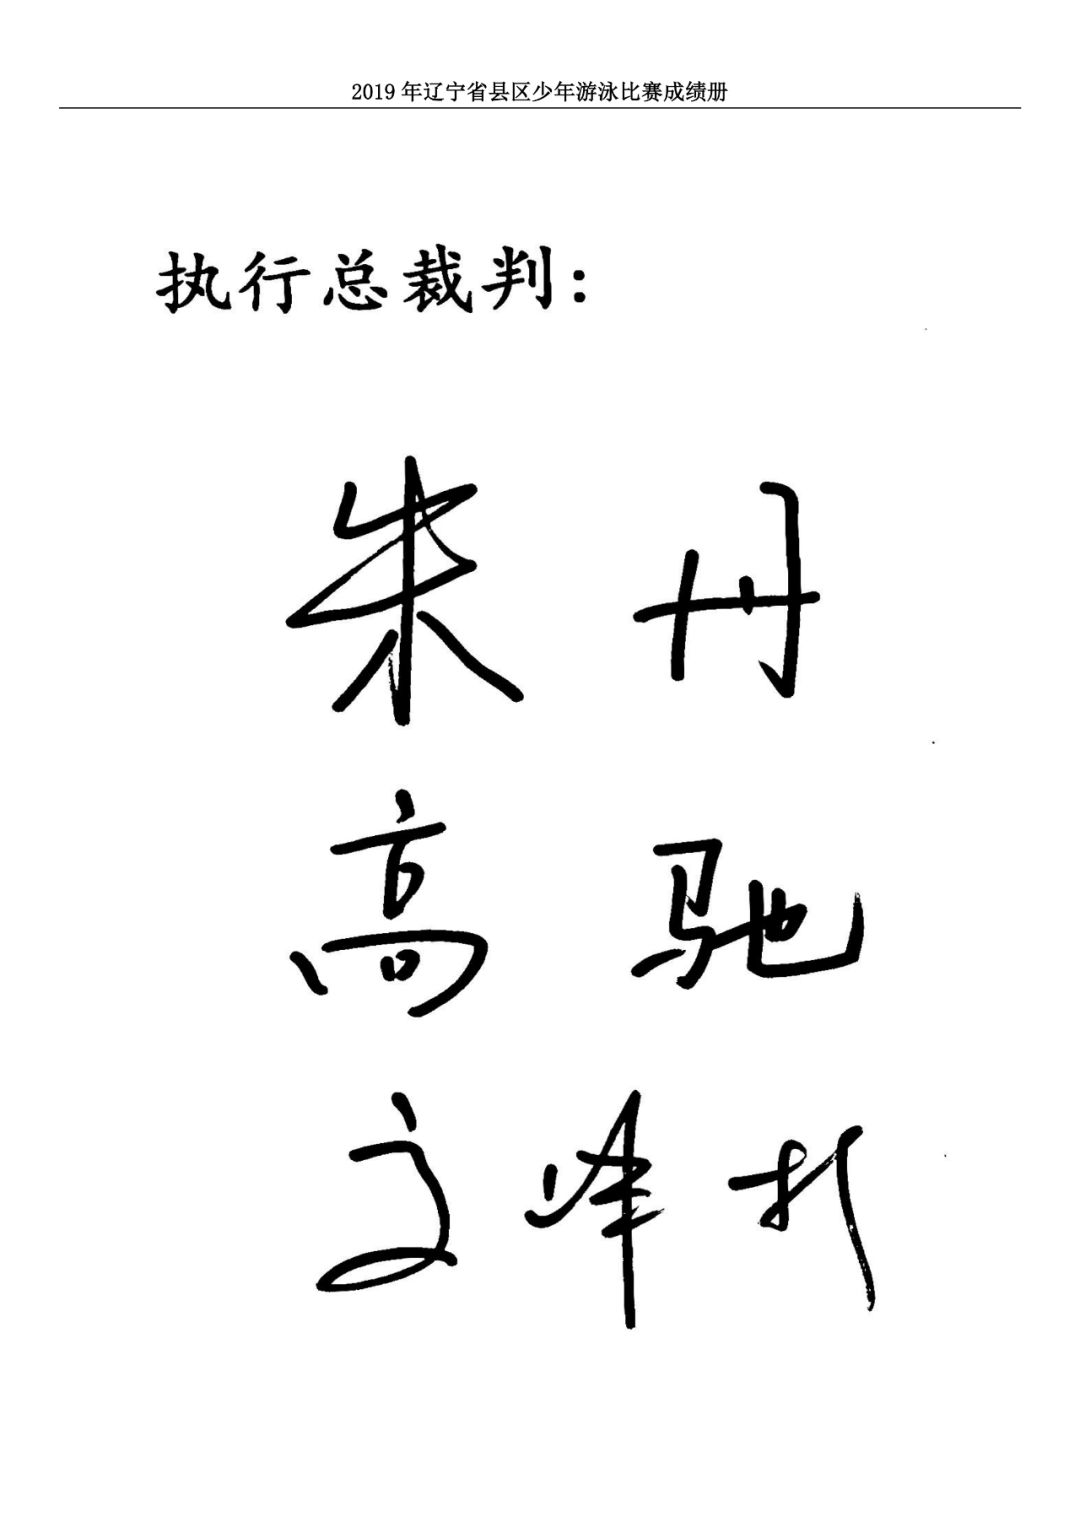 2019 年辽宁省县区少年游泳比赛成绩册
执行总裁判：
朱丹
高驰
文峰